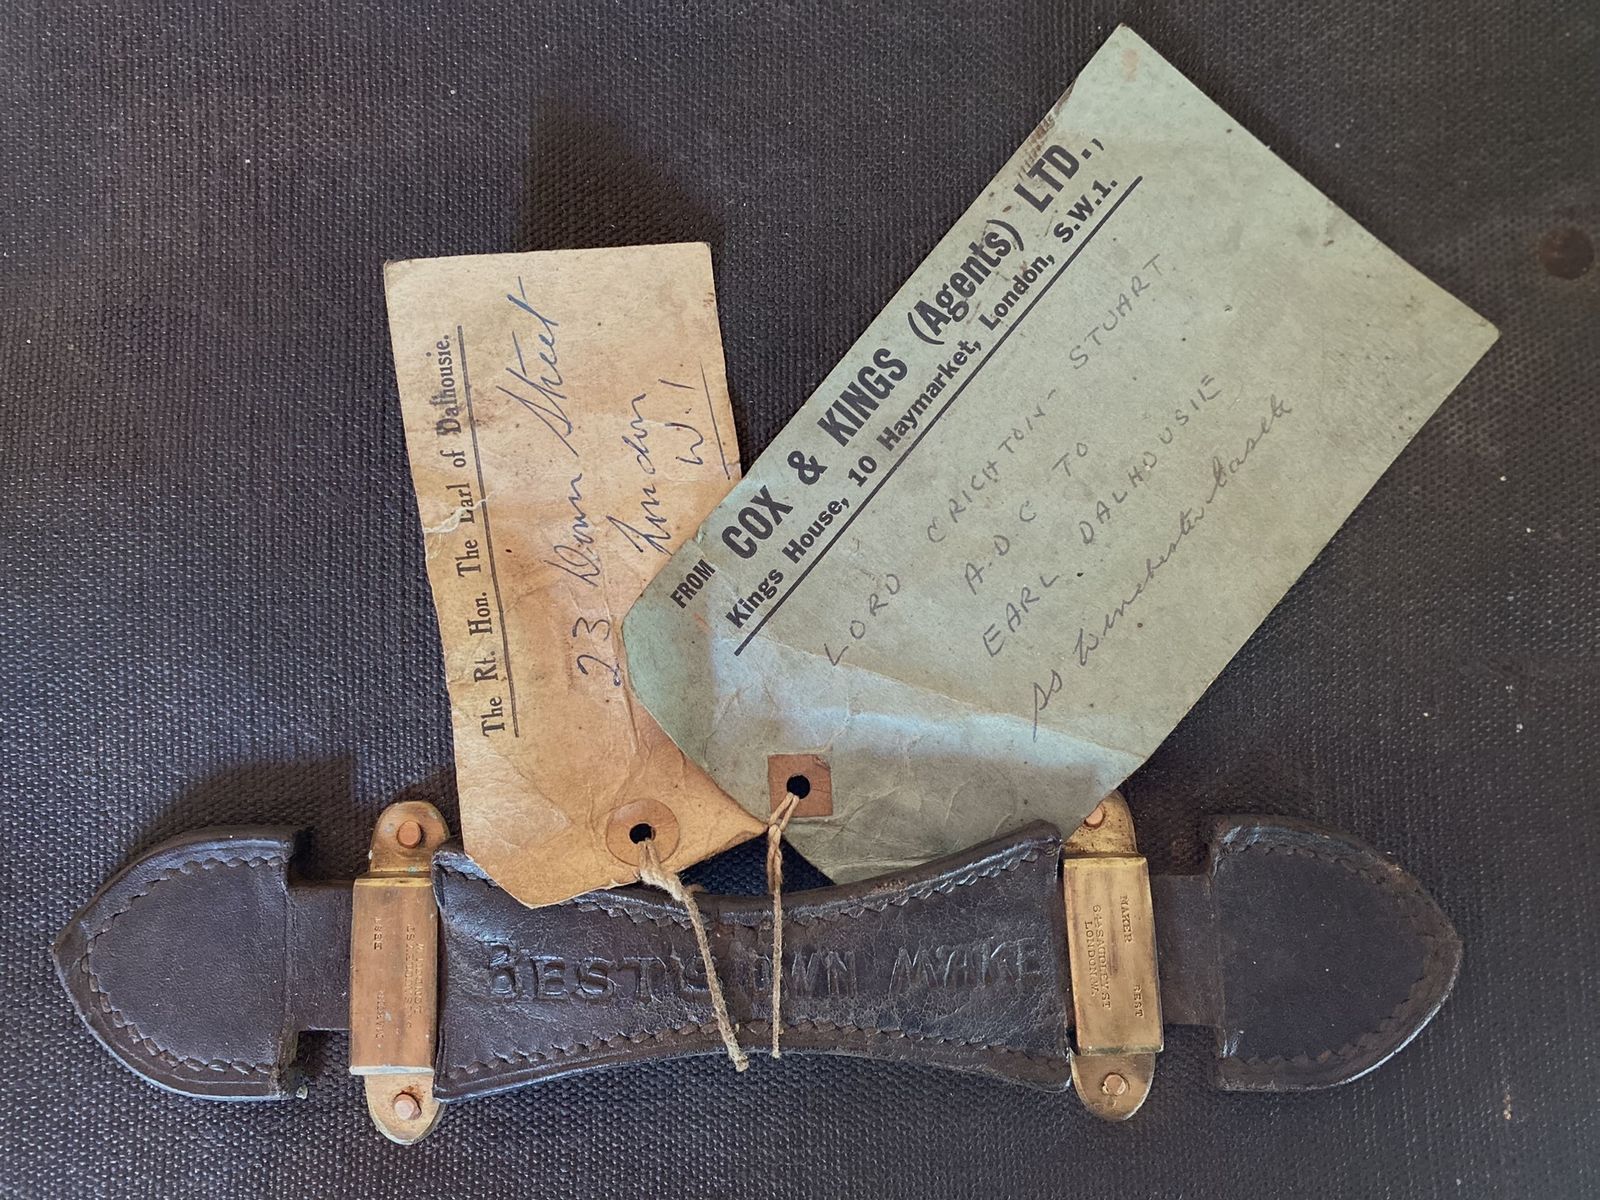 The Rt. Hon. The Earl of Dalhousie.
23 Down Street
London
W.1
FROM COX & KINGS (Agents) LTD.,
Kings House, 10 Haymarket, London, S.W.1.
LORD CRICHTON-STUART
A.D.C TO
EARL DALHOUSIE
SS Winchester Castle
BEST'S OWN MAKE
BEST
MAKER
LONDON
MAKER BEST
64 SAUDLEY ST
LONDON.W.